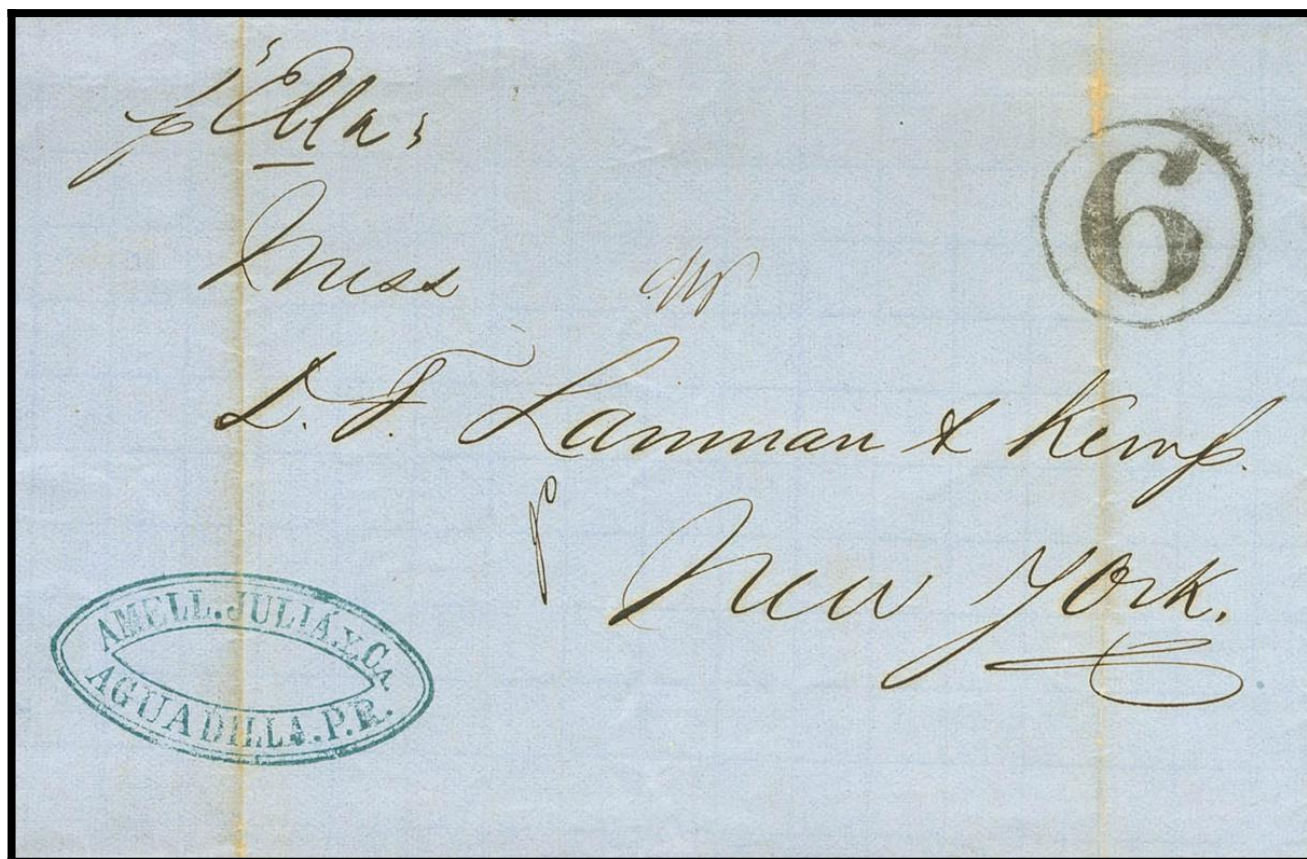 p "Ella"
6
Mess
D. F. Lanman & Kemp.
New York.
AMELL. JULIA. Y. CA.
AGUADILLA. P. R.